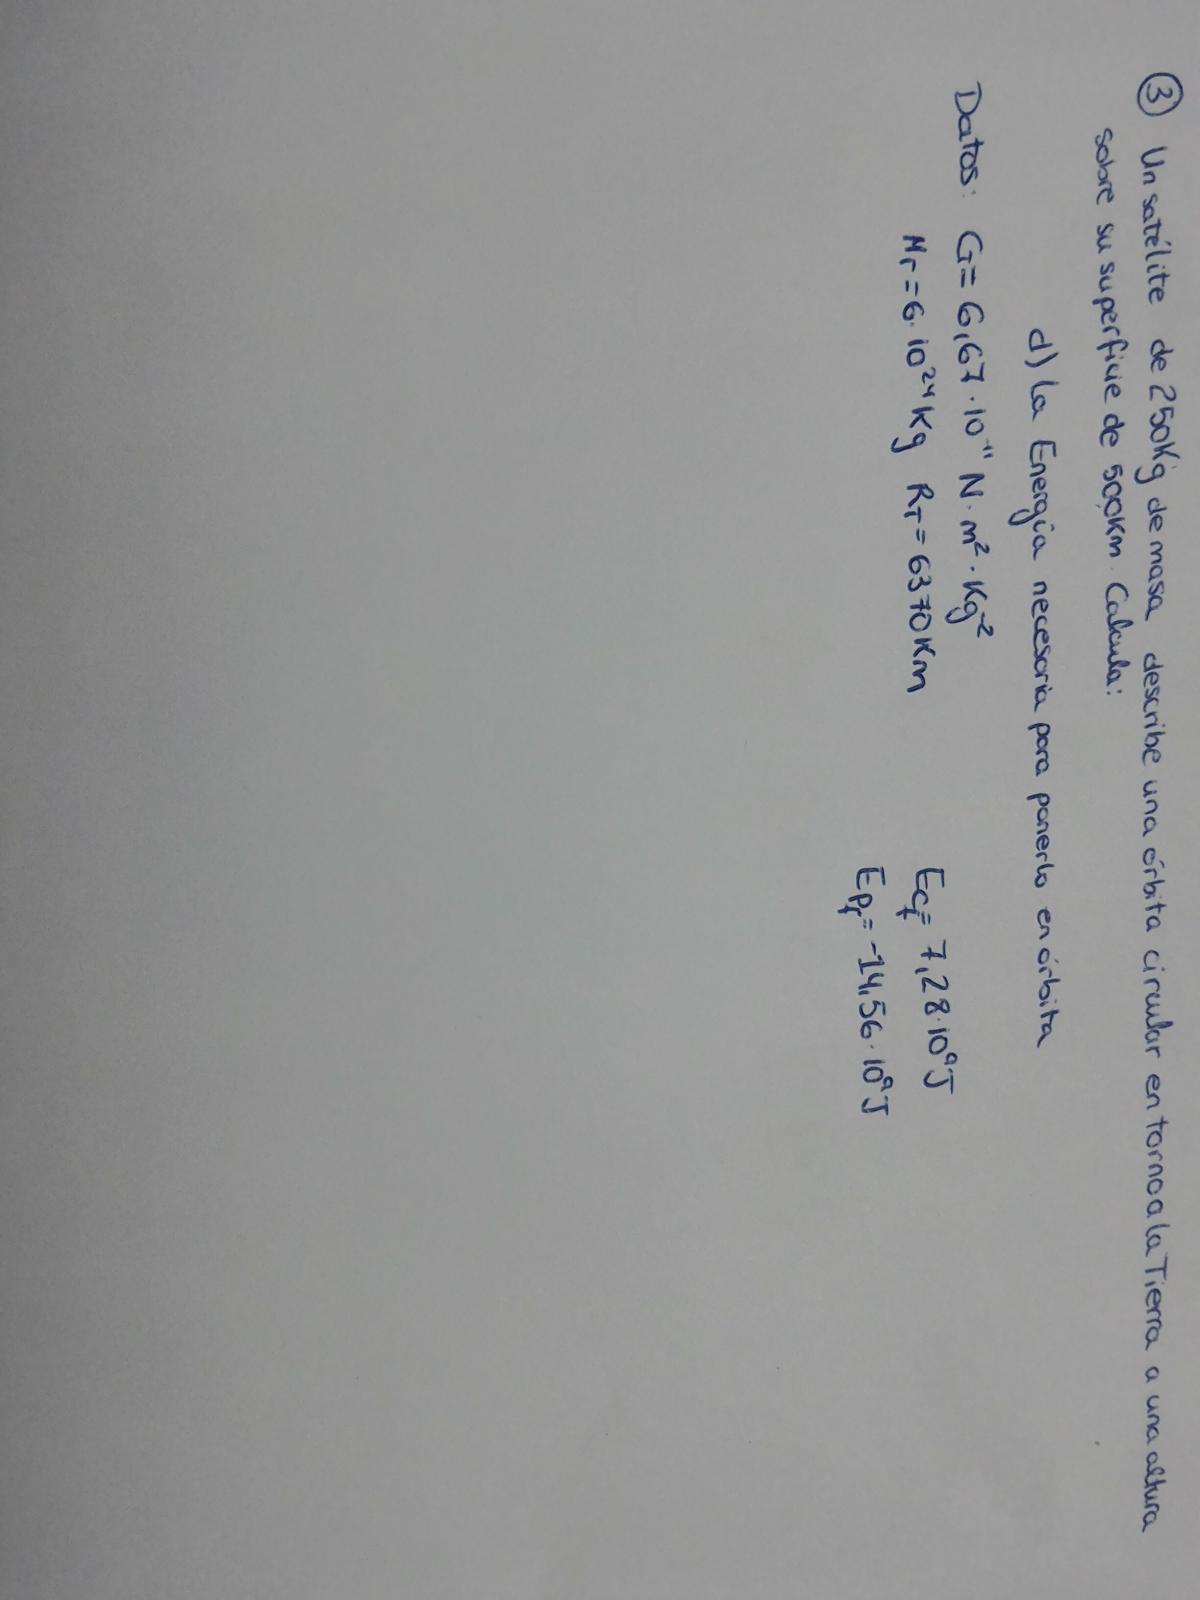 ③ Un satélite de 250Kg de masa describe una órbita circular en torno a la Tierra a una altura
sobre su superficie de 500Km. Calcula:
d) La Energía necesaria para ponerlo en órbita
Datos: G = 6,67·10⁻¹¹ N·m²·Kg⁻²
M_T = 6·10²⁴ Kg R_T = 6370Km
Ec_f = 7,28·10⁹J
Ep_f = -14,56·10⁹J